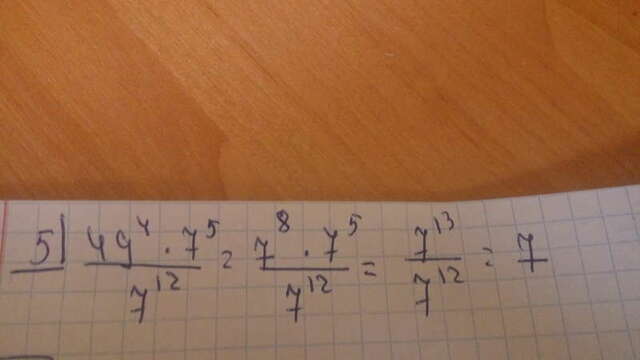 5) 49⁴ · 7⁵ / 7¹² = 7⁸ · 7⁵ / 7¹² = 7¹³ / 7¹² = 7